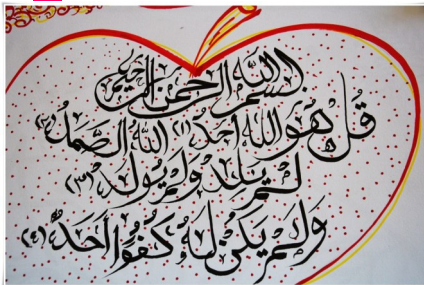 بسم الله الرحمن الرحيم
قُل هُوَ اللهُ أَحَدٌ (١) اللهُ الصَّمَدُ (٢)
لَم يَلِد وَلَم يُولَد (٣)
وَلَم يَكُن لَهُ كُفُوًا أَحَدٌ (٤)